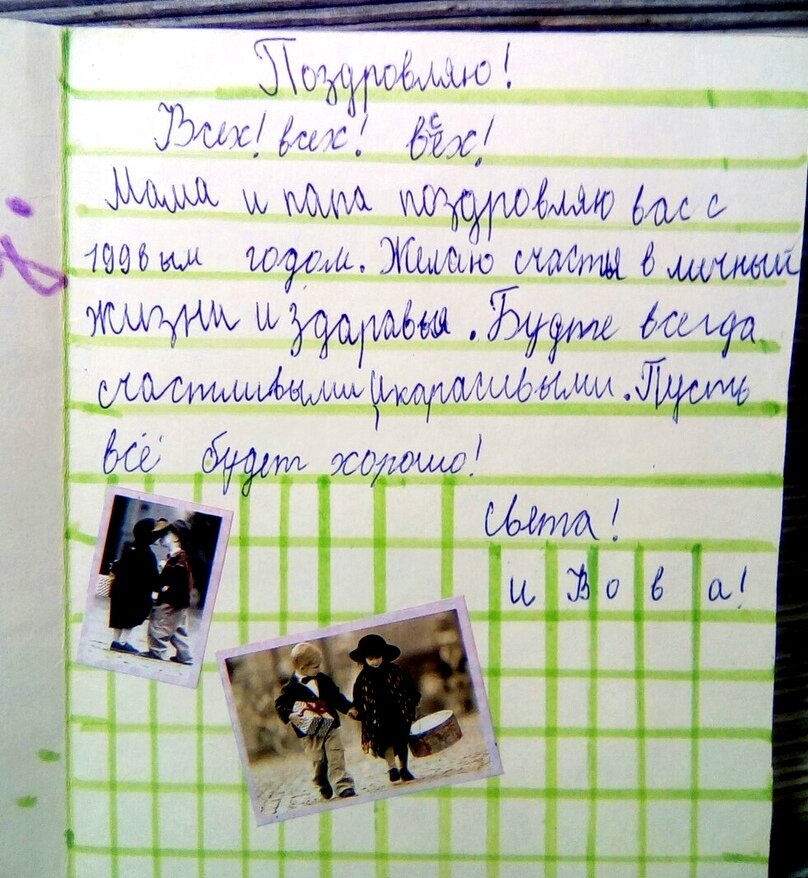 Поздровляю!
Всех! всех! всех!
Мама и папа поздровляю вас с
1998 ым годом. Желаю счастья в личный
жизни и здаравья. Будте всегда
счастливыми и карасивыми. Пусть
всё будет хорошо!
Света!
и Вова!